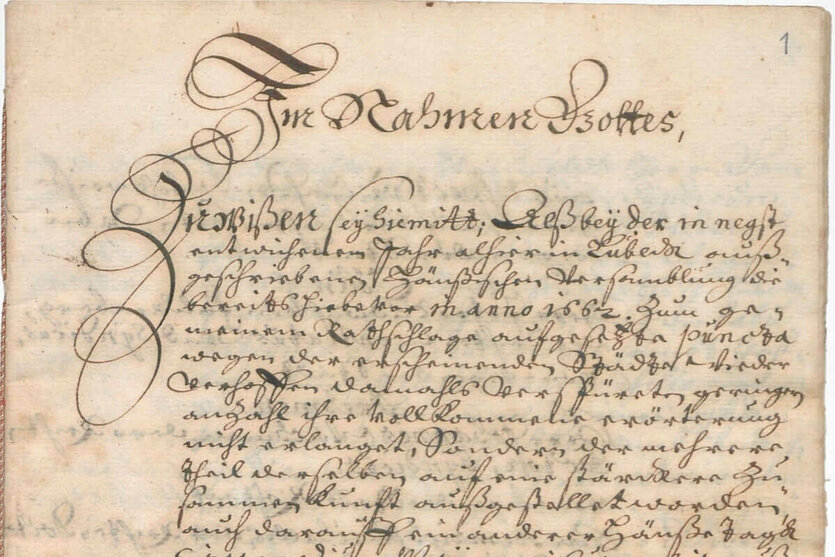 1
Im Nahmen Gottes,
Zuwißen sey hiemitt, Alß bey der in negst
entwichenem Jahr alhier in Lübeck auß-
geschriebenen Hänßischen Versamblung die
bereits hiebevor in anno 1662. zum ge-
meinem Rathschlage aufgesetzte puncta
wegen der erscheinenden Städte wieder
verhoffen damahls verspüreten geringen
anzahl ihre vollkommene erörterung
nicht erlanget, Sondern der mehrere
theil derselben auf eine stärckere Zu
sammenkunfft außgestellet worden,
auch darauff ein anderer Hänße Tag